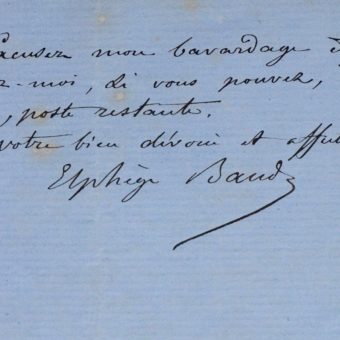 Excusez mon bavardage
z-moi, si vous pouvez,
, poste restante.
votre bien dévoué et affec
Elphège Baude